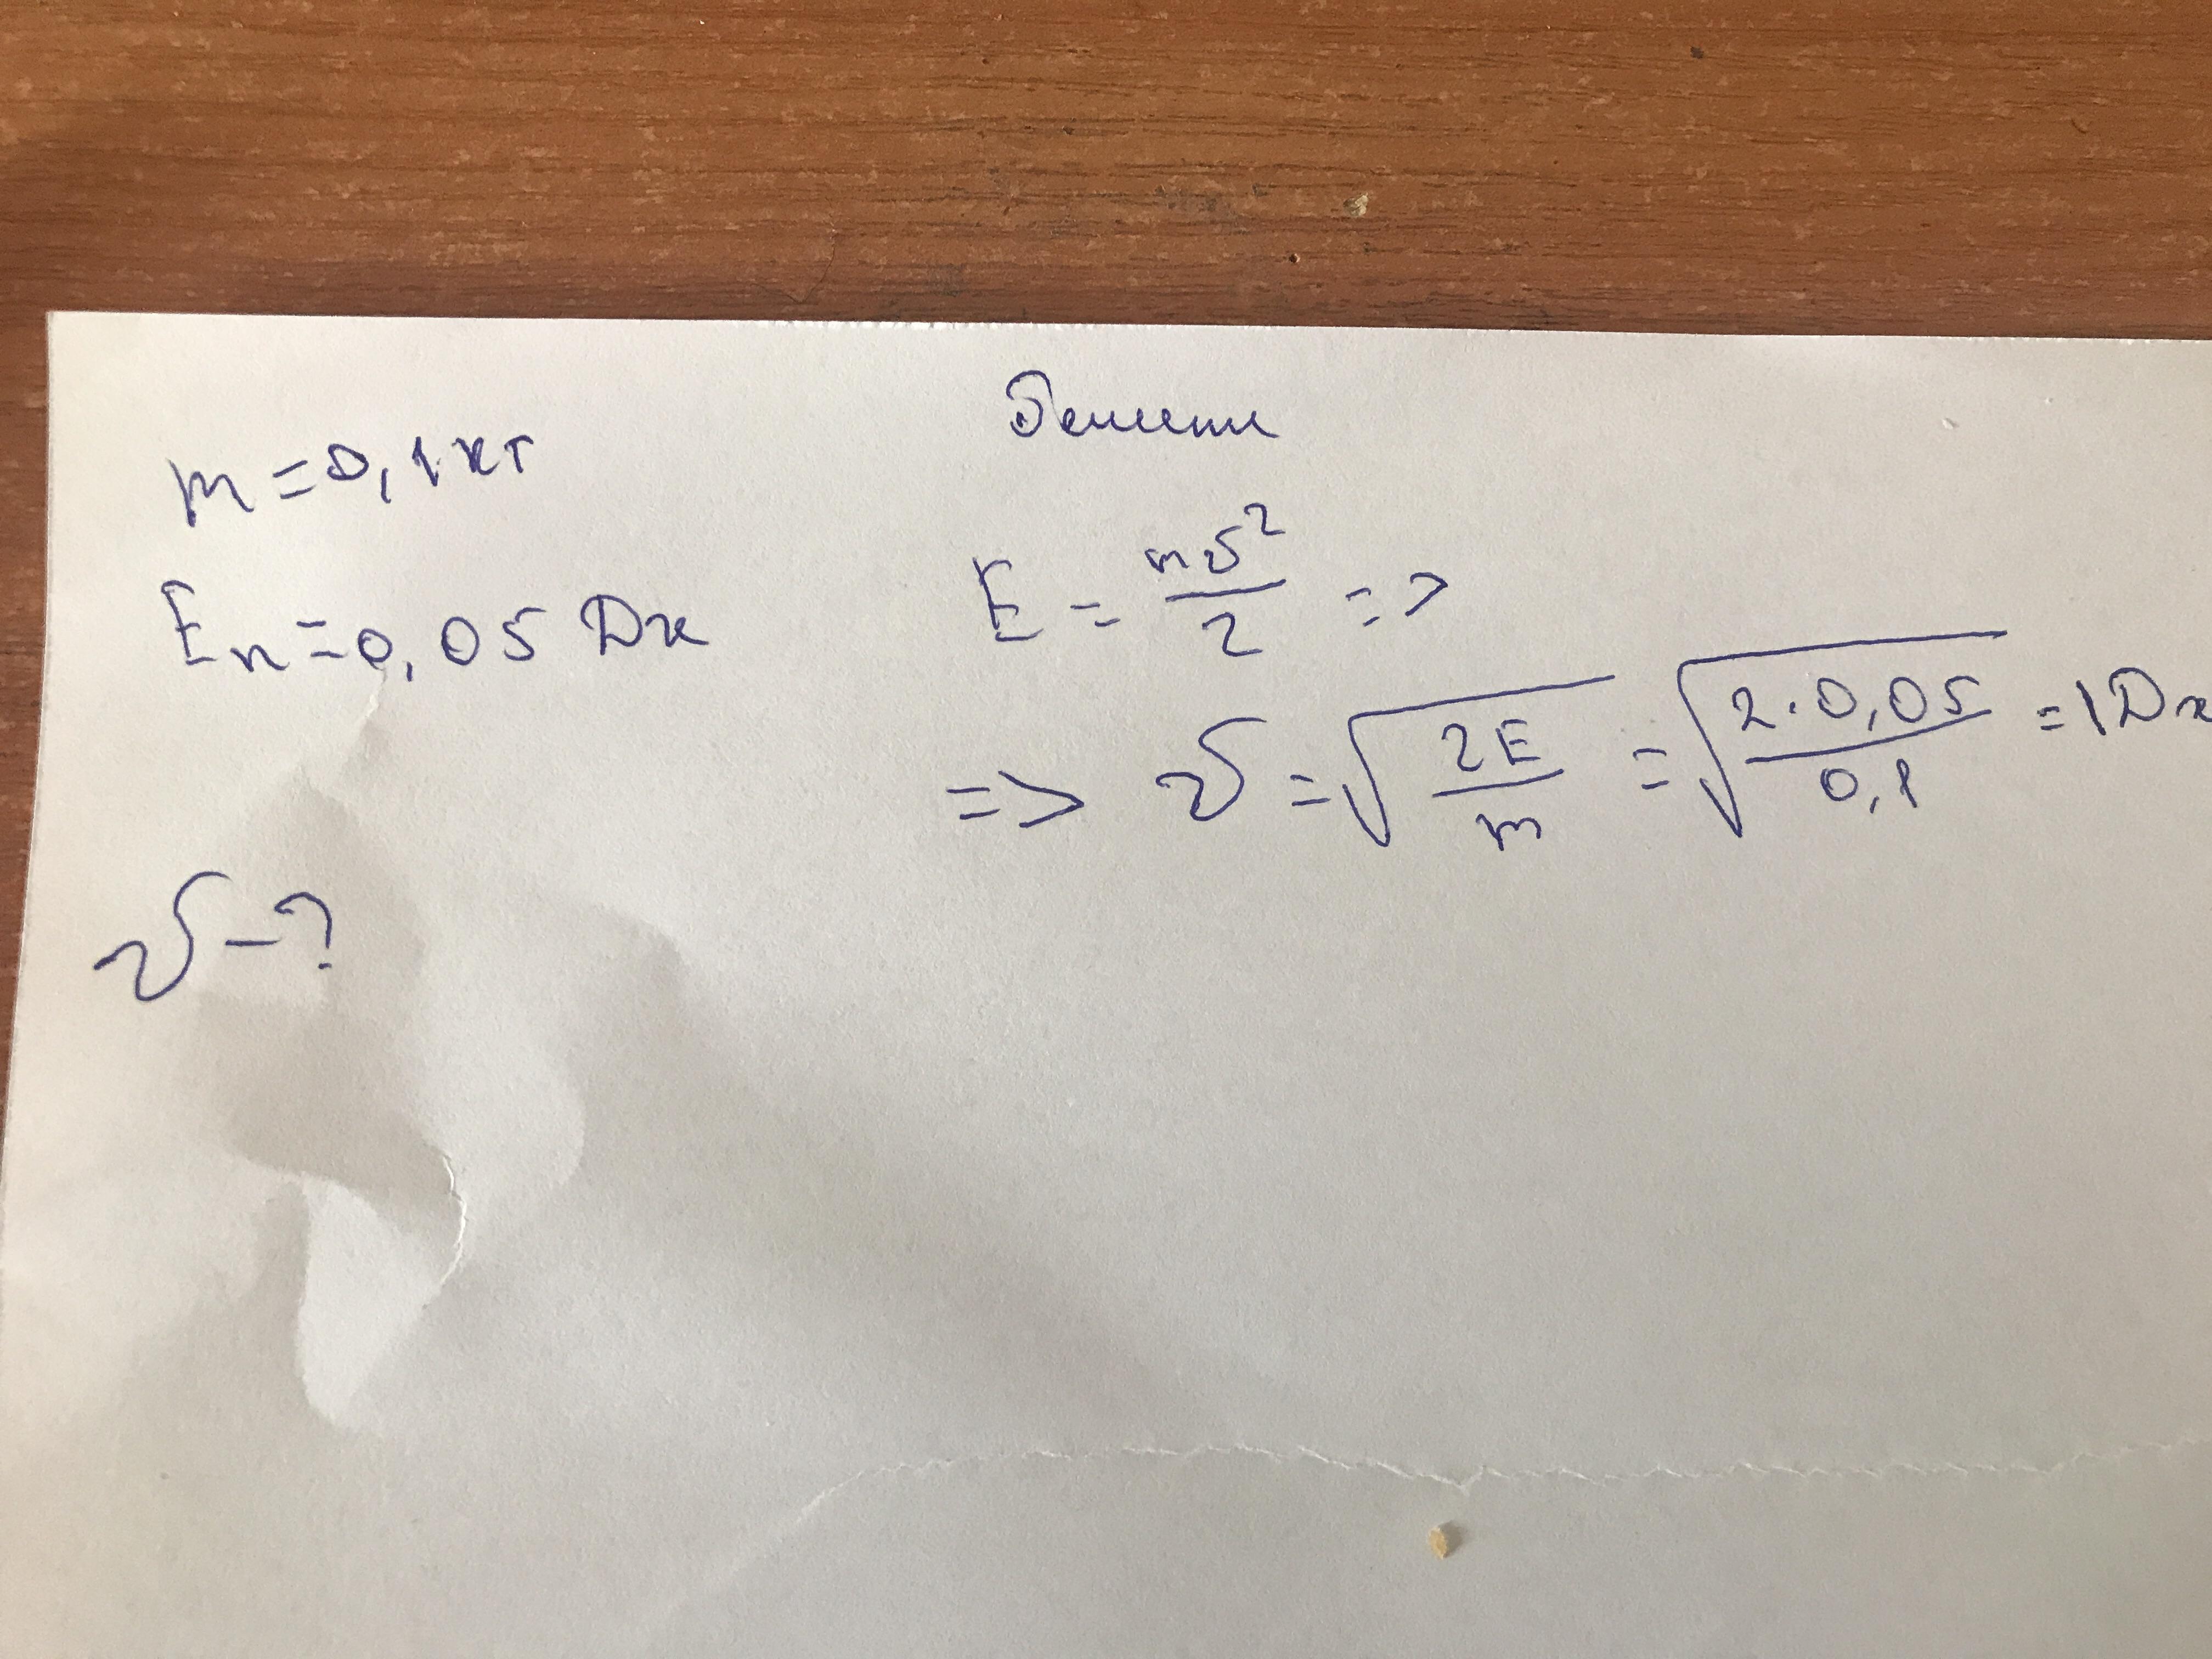 Решение
m = 0,1 кг
Eк = 0,05 Дж
E = mv²/2 =>
=> v = √(2E/m) = √(2·0,05/0,1) = 1 Дж
v - ?